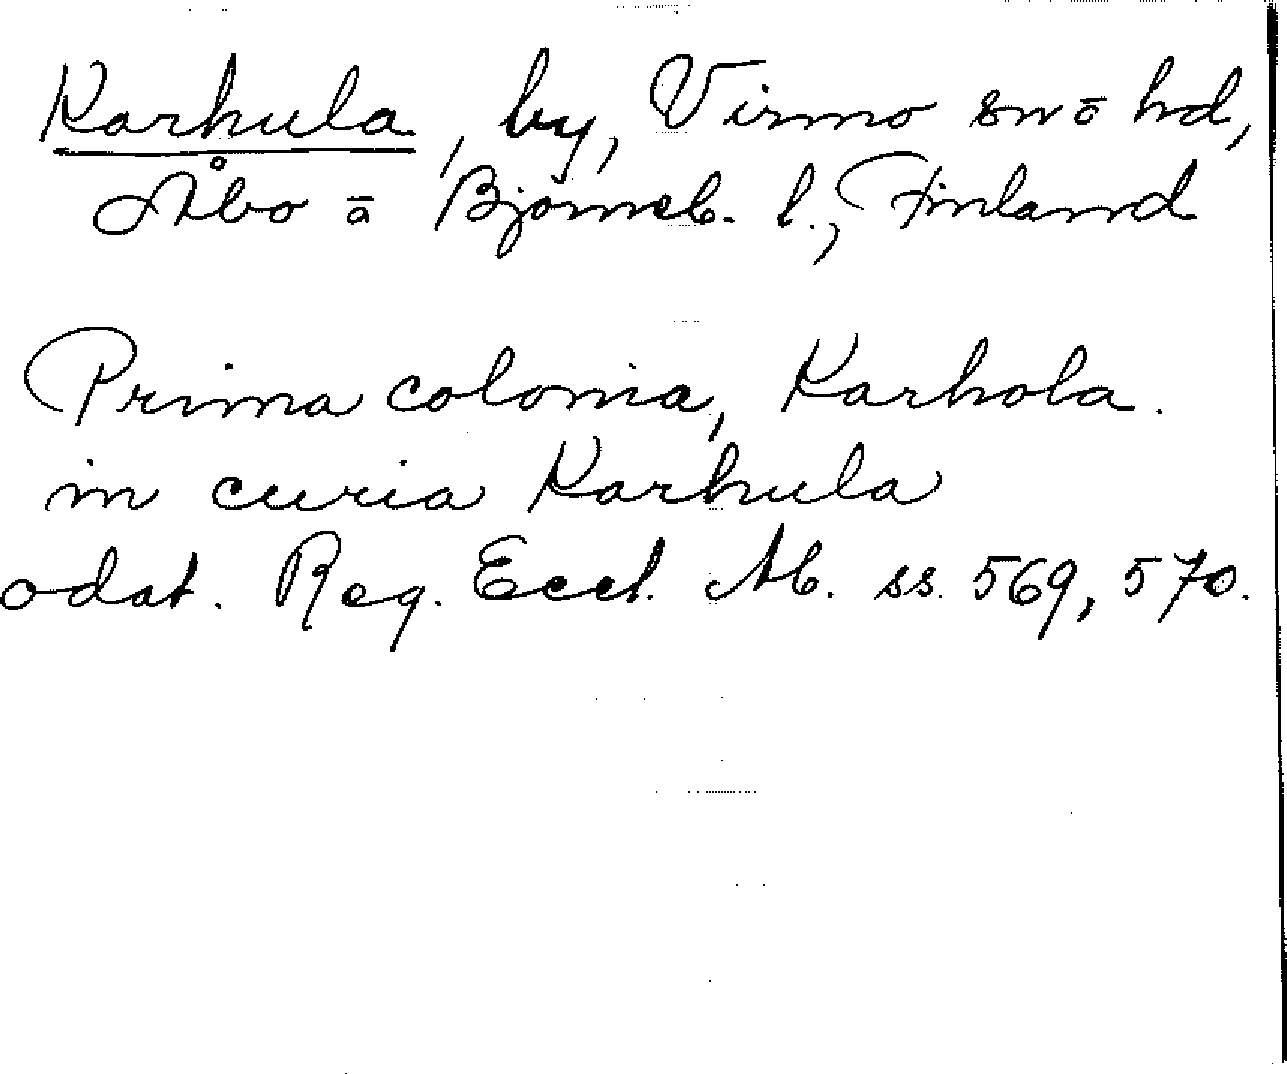 Karhula, by, Virmo sn o hd,
Åbo a Björneb. l., Finland
Prima colonia, Karhola.
in curia Karhula
odat. Reg. Eccl. Ab. ss. 569, 570.